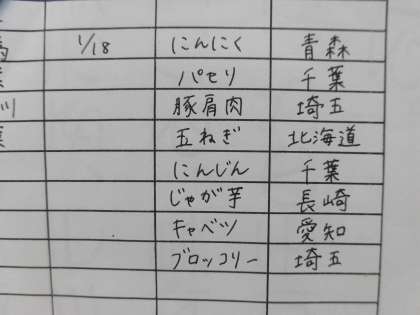 1/18 にんにく 青森
パセリ 千葉
豚肩肉 埼玉
玉ねぎ 北海道
にんじん 千葉
じゃが芋 長崎
キャベツ 愛知
ブロッコリー 埼玉